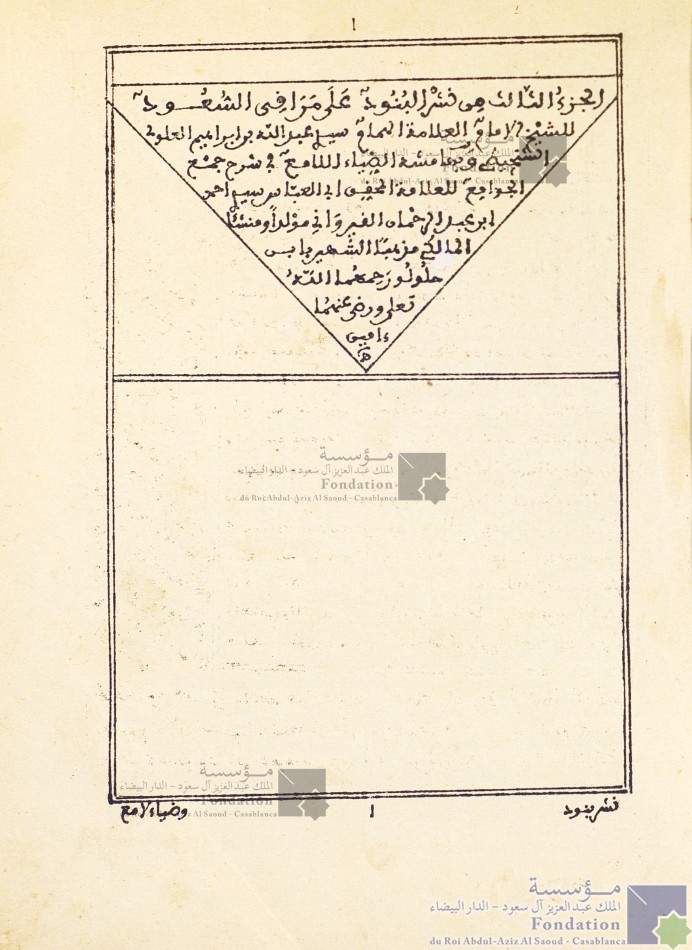 ١
الجزء الثالث من نشر البنود على مراقي السعود
للشيخ الإمام العلامة الهمام سيدي عبد الله بن إبراهيم العلوي
الشنجيطي وبهامشه الضياء اللامع في شرح جمع
الجوامع للعلامة المحقق أبي العباس سيدي أحمد
ابن عبد الرحمان القيرواني مولدا ومنشئا
المالكي مذهبا الشهير بابن
حلولو رحمهما الله
تعلى ورضي عنهما
ءامين
مؤسسة
الملك عبد العزيز آل سعود - الدار البيضاء
Fondation
du Roi Abdul-Aziz Al Saoud - Casablanca
مؤسسة
الملك عبد العزيز آل سعود - الدار البيضاء
Fondation
du Roi Abdul-Aziz Al Saoud - Casablanca
نشر بنود
١
وضياء لامع
مؤسسة
الملك عبد العزيز آل سعود - الدار البيضاء
Fondation
du Roi Abdul-Aziz Al Saoud - Casablanca